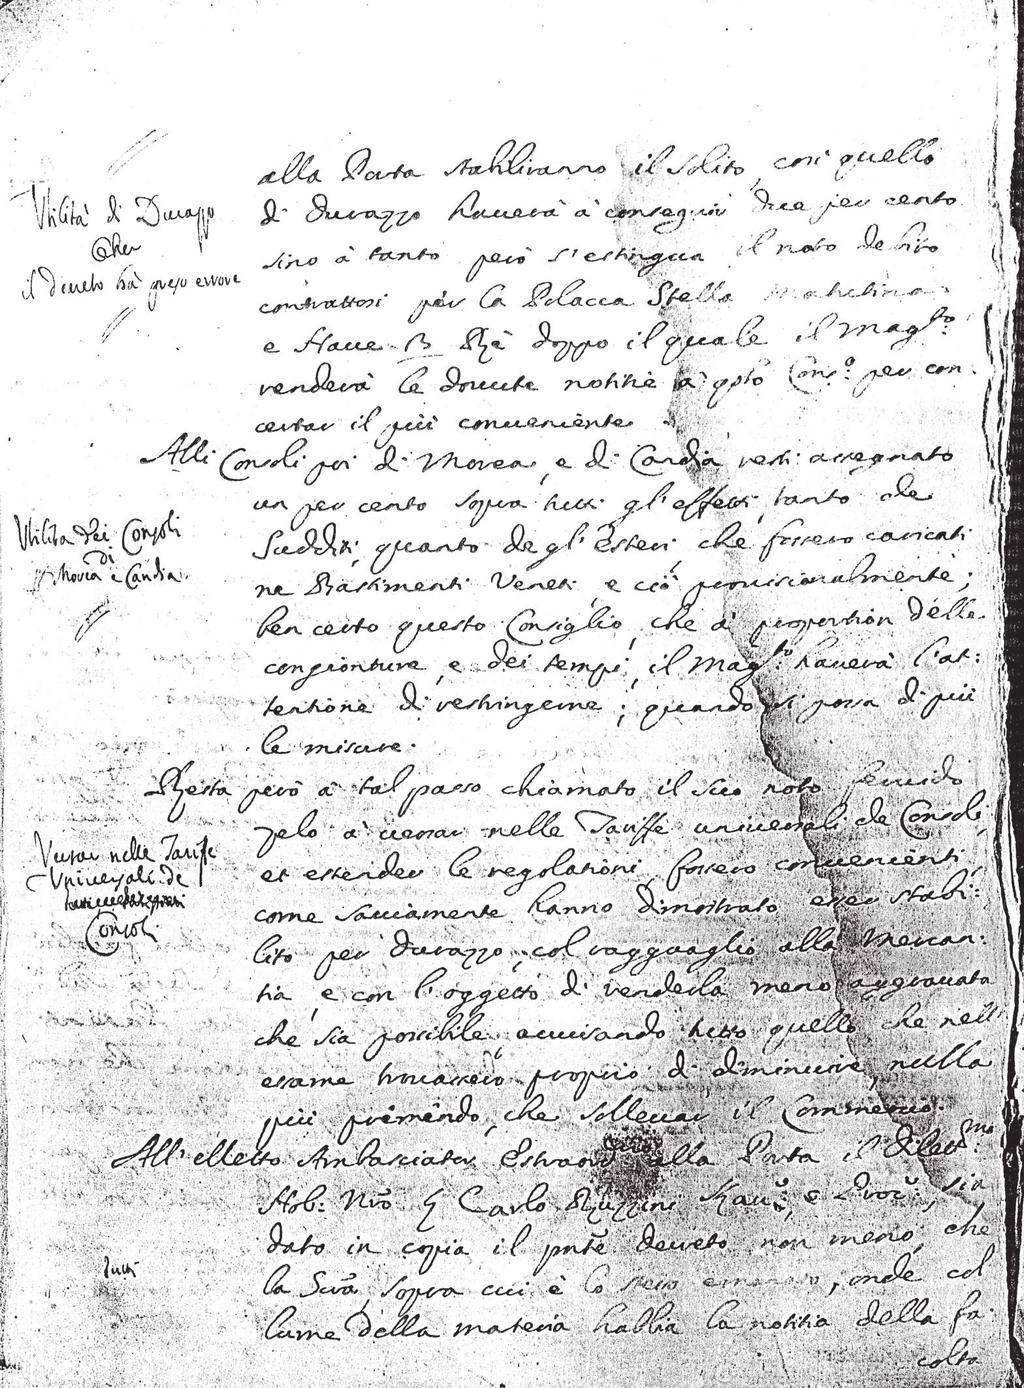 alla Porta stabiliranno il solito, così quello
Vtilità di Durazzo
di Durazzo haverà à conseguir due per cento
il decreto hà preso errore
sino à tanto però s'estingua il noto debito
contrattosi per la Polacca Stella
e Naue doppo il quale il Mag.to
renderà le douute notitie à q̃sto Cons.o per con-
certar il più conueniente.
Alli Consoli poi di Morea, e di Candia resti assegnato
un per cento sopra tutti gl'effetti, tanto de
Vtilità dei Consoli
di
Morea e Candia
Sudditi, quanto degl'Esteri, che fossero caricati
ne Bastimenti Veneti, e ciò prouisionalmente;
ben certo questo Consiglio, che à proportion delle
congionture, e dei tempi, il Mag.to hauerà l'at:
tentione di restringerne, quando si possa di più
le misure.
Resta però à tal passo chiamato il suo noto feruido
zelo à uersar nelle Tariffe uniuersali de Consoli,
Versar nelle Tariffe
Vniversali de
Consoli
et estender le regolationi, fossero conuenienti,
come sauiamente hanno dimostrato esser stabi:
lito per Durazzo, col ragguaglio alla Mercan:
tia, e con l'oggetto di renderla meno aggrauata
che sia possibile, auuisando tutto quello che nell'
esame trouassero proprio di diminuire, nulla
più premendo, che solleuar il Commercio.
All'eletto Ambasciator Estraord.rio alla Porta il Dilett.mo
Nob: Nr̃o Carlo Ruzzini Kau.r, e Proc.r, sia
dato in copia il pñte decreto non meno, che
tutti
la Scrã, sopra cui è lo stesso emanato, onde col
lume della materia habbia la notitia della fa-
coltà